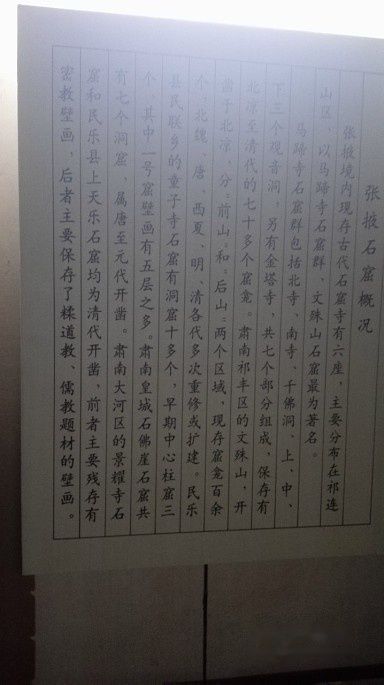 张掖石窟概况
张掖境内现存古代石窟寺有六座，主要分布在祁连
山区，以马蹄寺石窟群、文殊山石窟最为著名。
马蹄寺石窟群包括北寺、南寺、千佛洞、上、中、
下三个观音洞，另有金塔寺，共七个部分组成，保存有
北凉至清代的七十多个窟龛。肃南祁丰区的文殊山，开
凿于北凉，分“前山”和“后山”两个区域，现存窟龛百余
个，北魏、唐、西夏、明、清各代多次重修或扩建。民乐
县民联乡的童子寺石窟有洞窟十多个，早期中心柱窟三
个，其中一号窟壁画有五层之多。肃南皇城石佛崖石窟共
有七个洞窟，属唐至元代开凿。肃南大河区的景耀寺石
窟和民乐县上天乐石窟均为清代开凿，前者主要残存有
密教壁画，后者主要保存了糅道教、儒教题材的壁画。